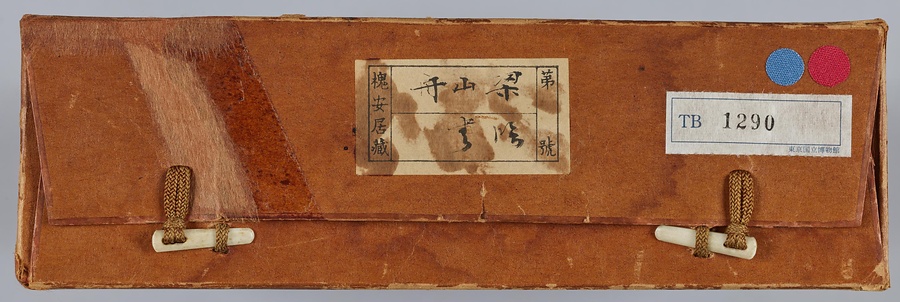 第 號
梁山舟
槐安居藏
TB 1290
東京国立博物館